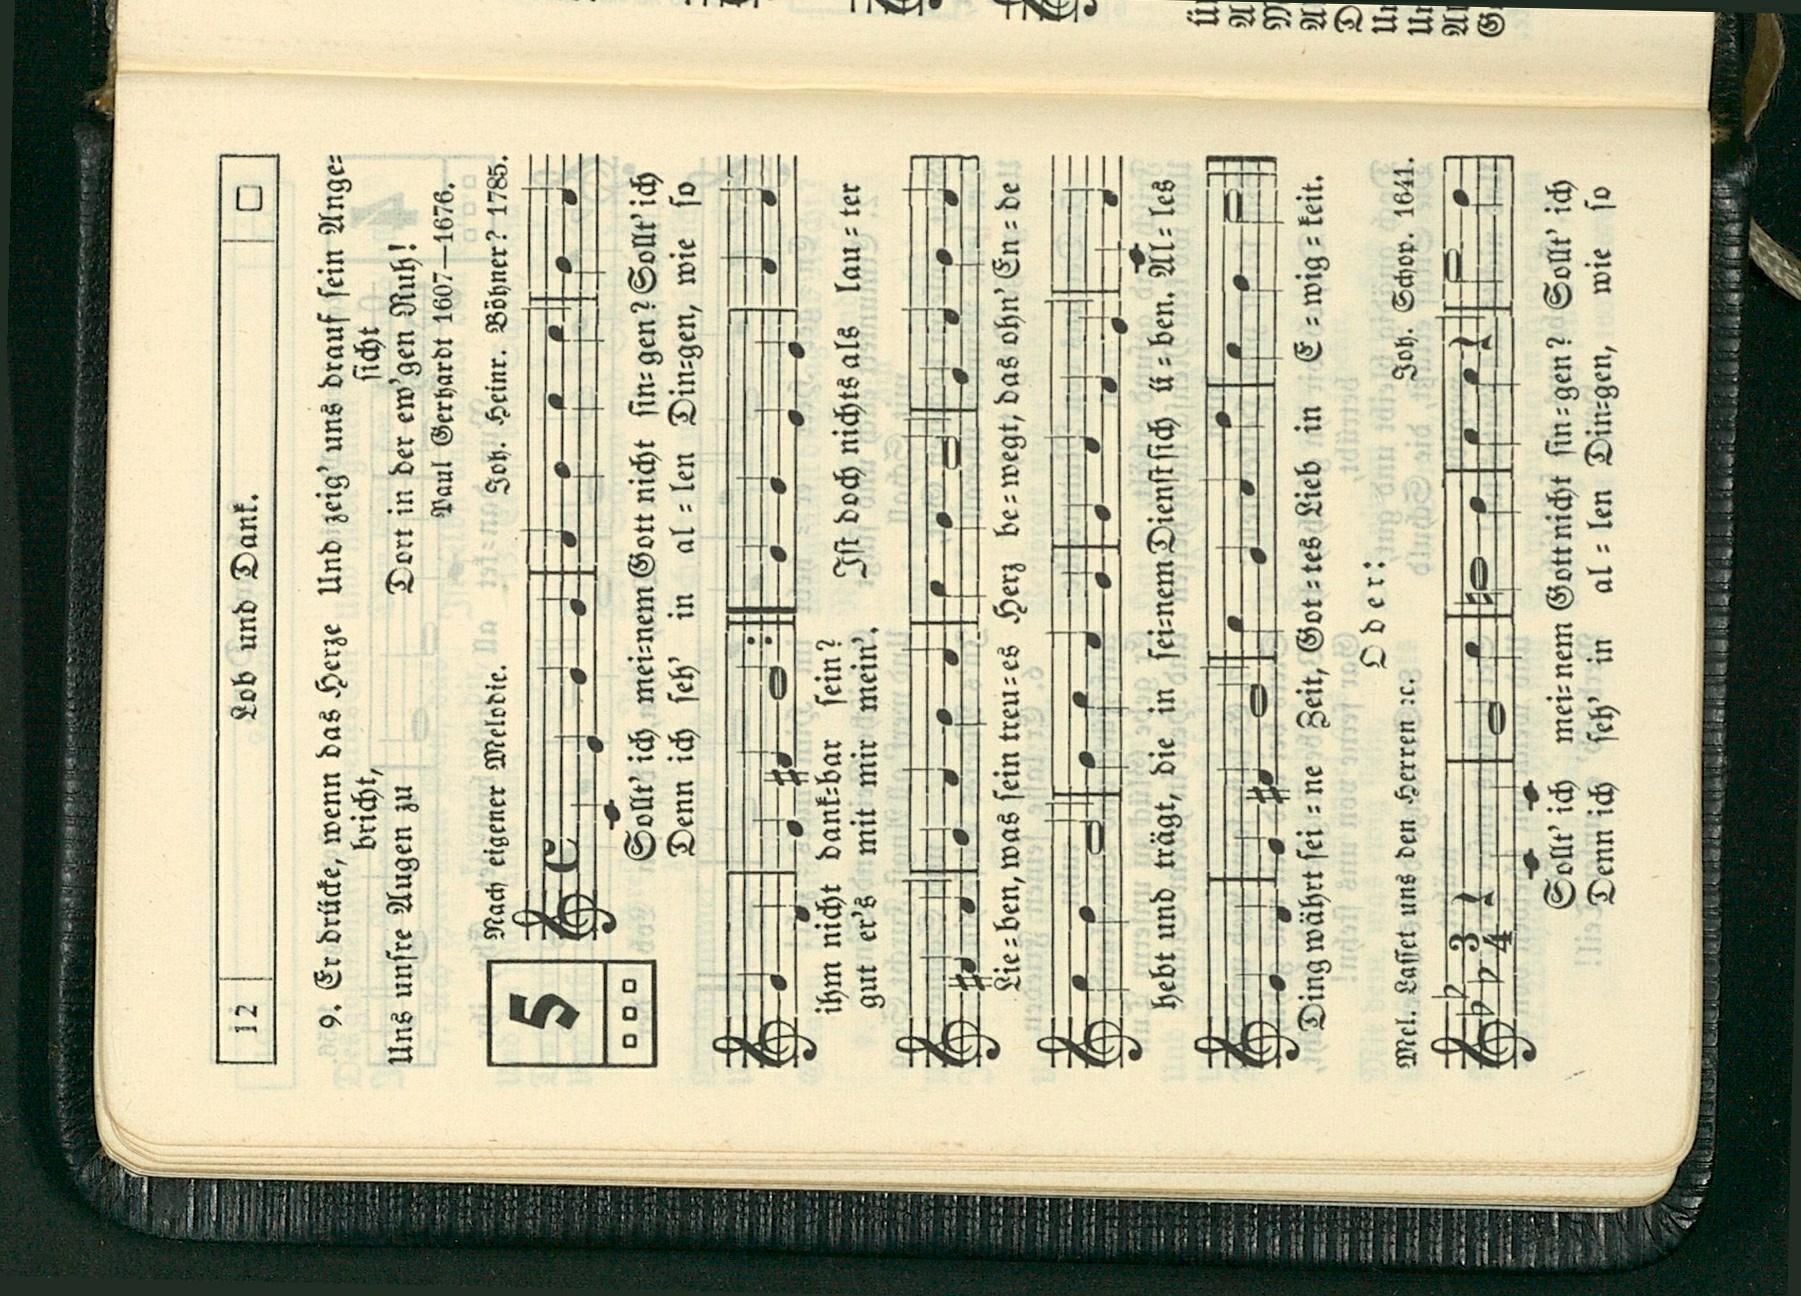 12 Lob und Dank.
9. Er drücke, wenn das Herze Und zeig' uns drauf sein Ange=
bricht, sicht
Uns unsre Augen zu Dort in der ew'gen Ruh!
Paul Gerhardt 1607—1676.
Nach eigener Melodie. Joh. Heinr. Böhner? 1785.
5
Sollt' ich mei=nem Gott nicht sin=gen? Sollt' ich
Denn ich seh' in al=len Din=gen, wie so
ihm nicht dank=bar sein? Ist doch nichts als lau=ter
gut er's mit mir mein'.
Lie=ben, was sein treu=es Herz be=wegt, das ohn' En=de
hebt und trägt, die in sei=nem Dienst sich ü=ben. Al=les
Ding währt sei=ne Zeit, Got=tes Lieb in E=wig=keit.
Oder:
Mel. Lasset uns den Herren ꝛc. Joh. Schop. 1641.
Sollt' ich mei=nem Gott nicht sin=gen? Sollt' ich
Denn ich seh' in al=len Din=gen, wie so